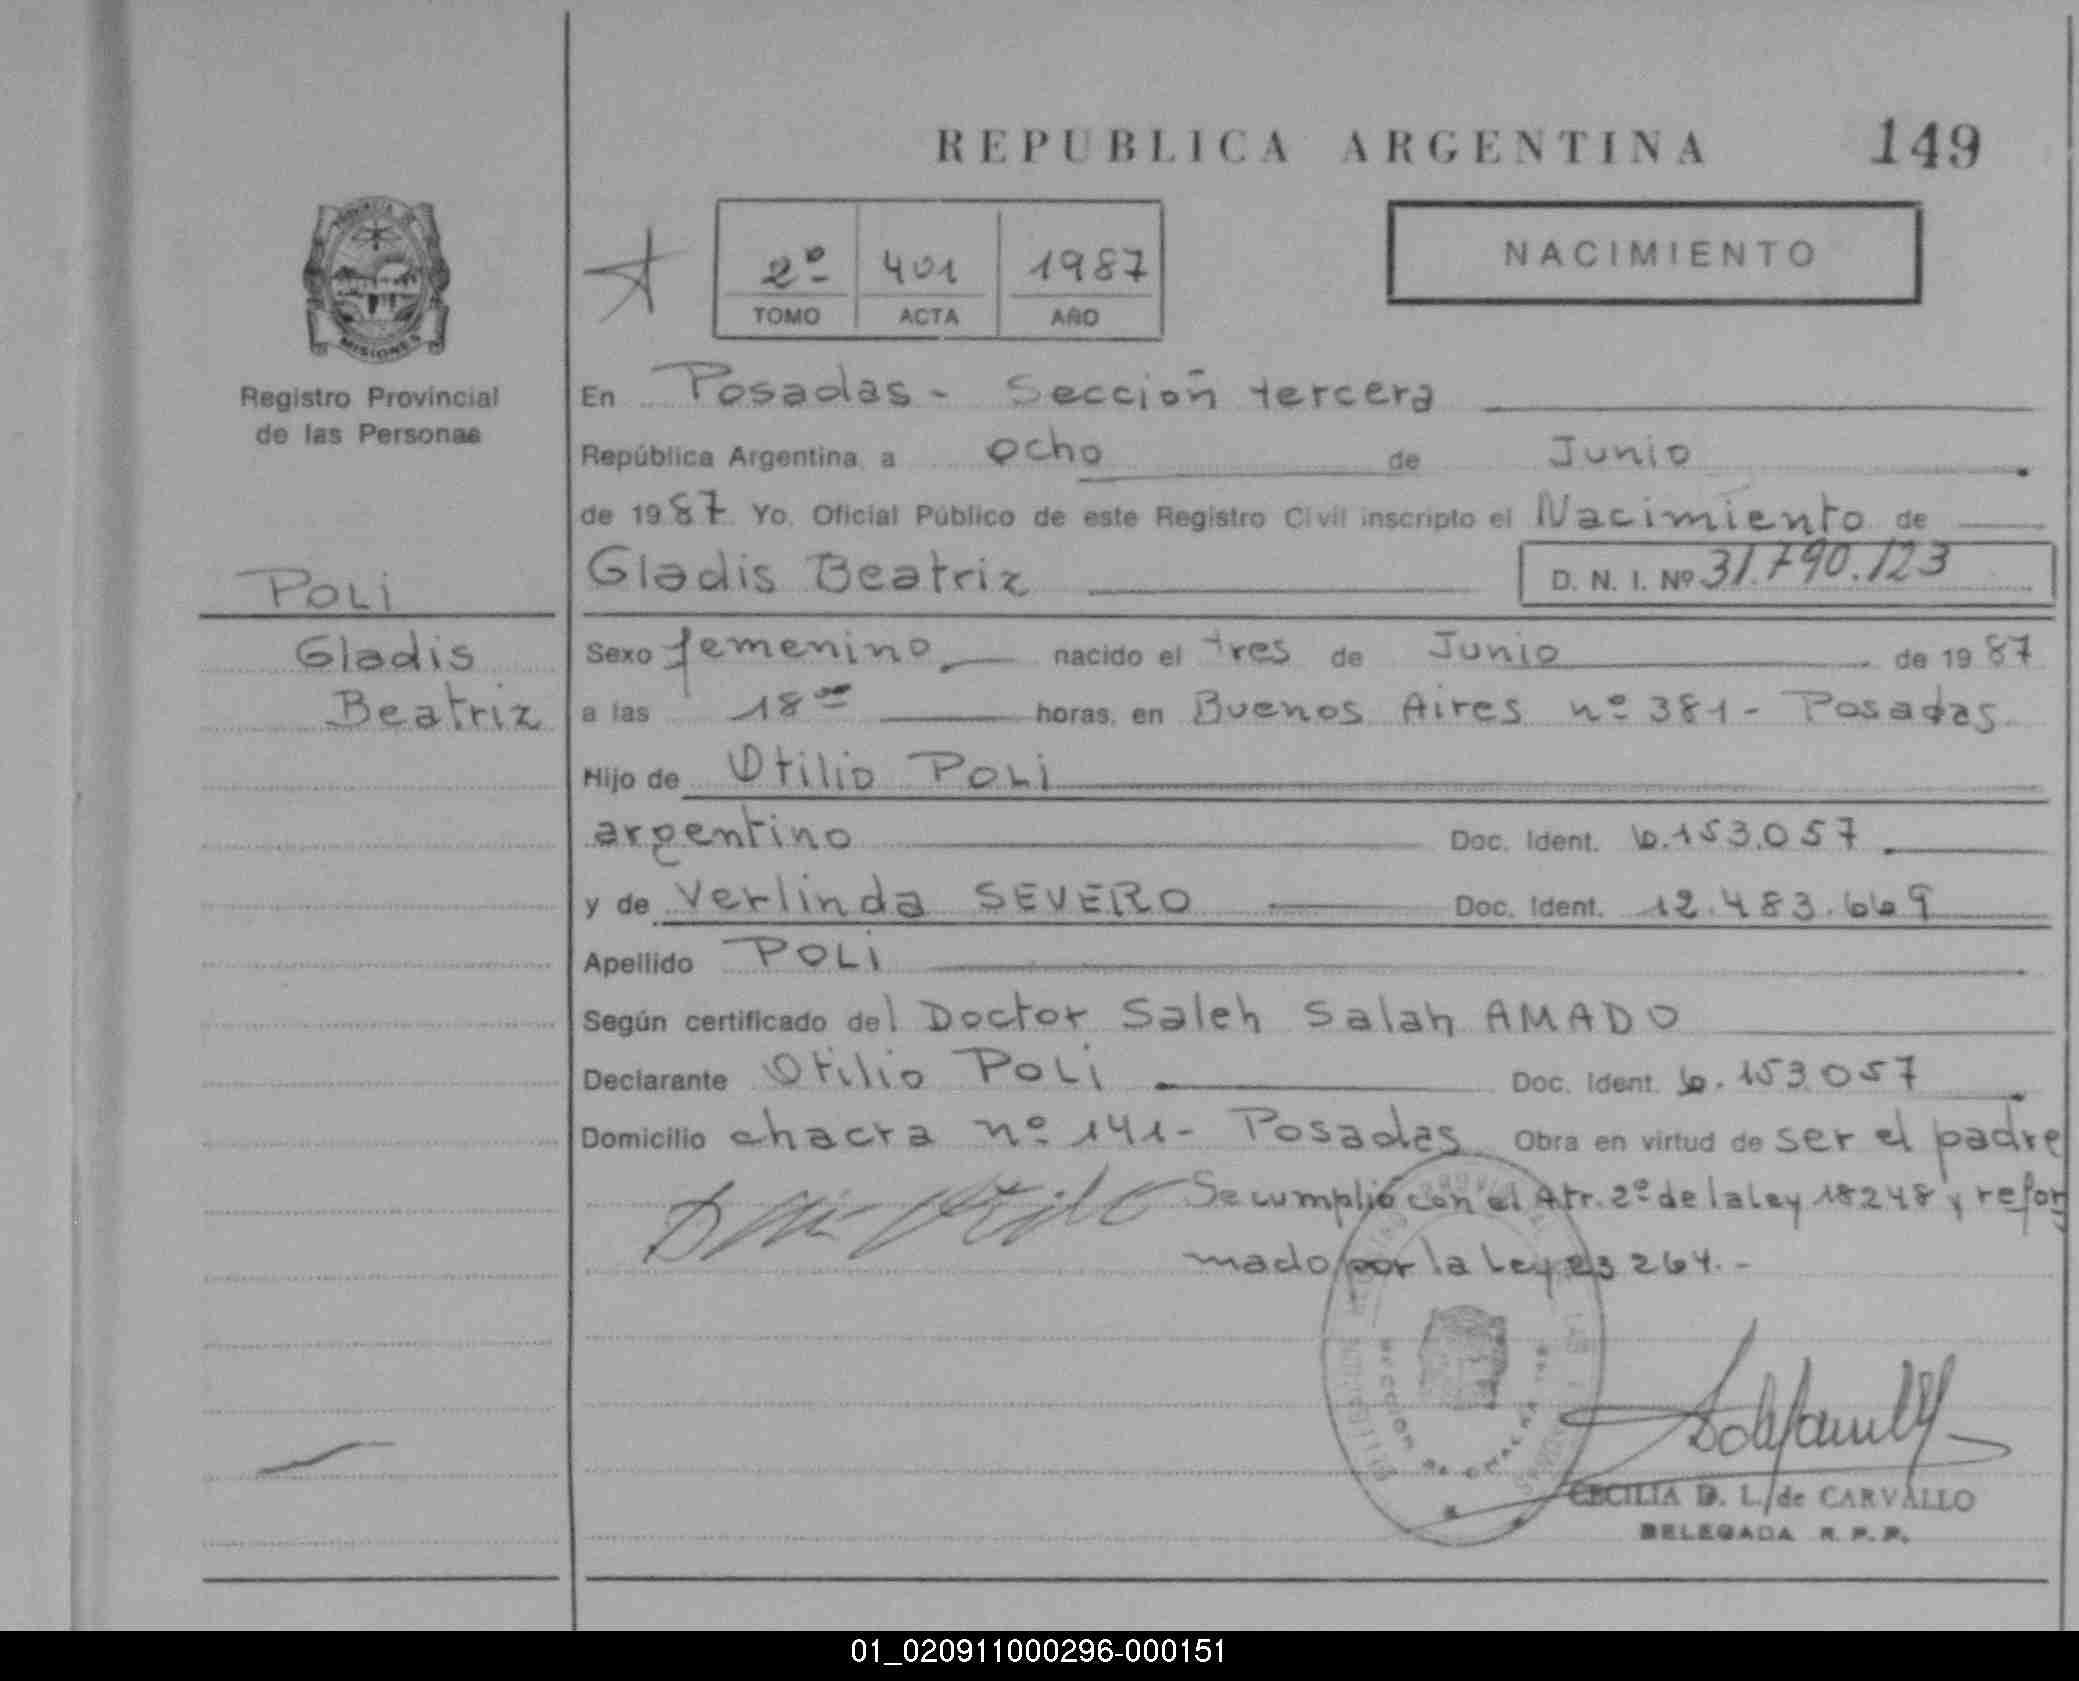 REPUBLICA ARGENTINA 149
NACIMIENTO
2º 401 1987
TOMO ACTA AÑO
PROVINCIA DE MISIONES
Registro Provincial
de las Personas
En Posadas - Sección tercera
República Argentina, a ocho de Junio
de 1987 Yo, Oficial Público de este Registro Civil inscripto el Nacimiento de
POLI
Gladis Beatriz D. N. I. Nº 31.790.123
Gladis
Sexo femenino nacido el tres de Junio de 1987
Beatriz
a las 18 ºº horas, en Buenos Aires nº 381 - Posadas
Hijo de Otilio POLI
argentino Doc. Ident. 6.153.057
y de Verlinda SEVERO Doc. Ident. 12.483.669
Apellido POLI
Según certificado del Doctor Saleh Salah AMADO
Declarante Otilio POLI Doc. Ident. 6.153.057
Domicilio chacra nº 141 - Posadas Obra en virtud de ser el padre
Se cumplió con el Atr. 2º de la Ley 18248 y refor
mado por la Ley 23264.-
CECILIA D. L. de CARVALLO
DELEGADA R. P. P.
01_020911000296-000151